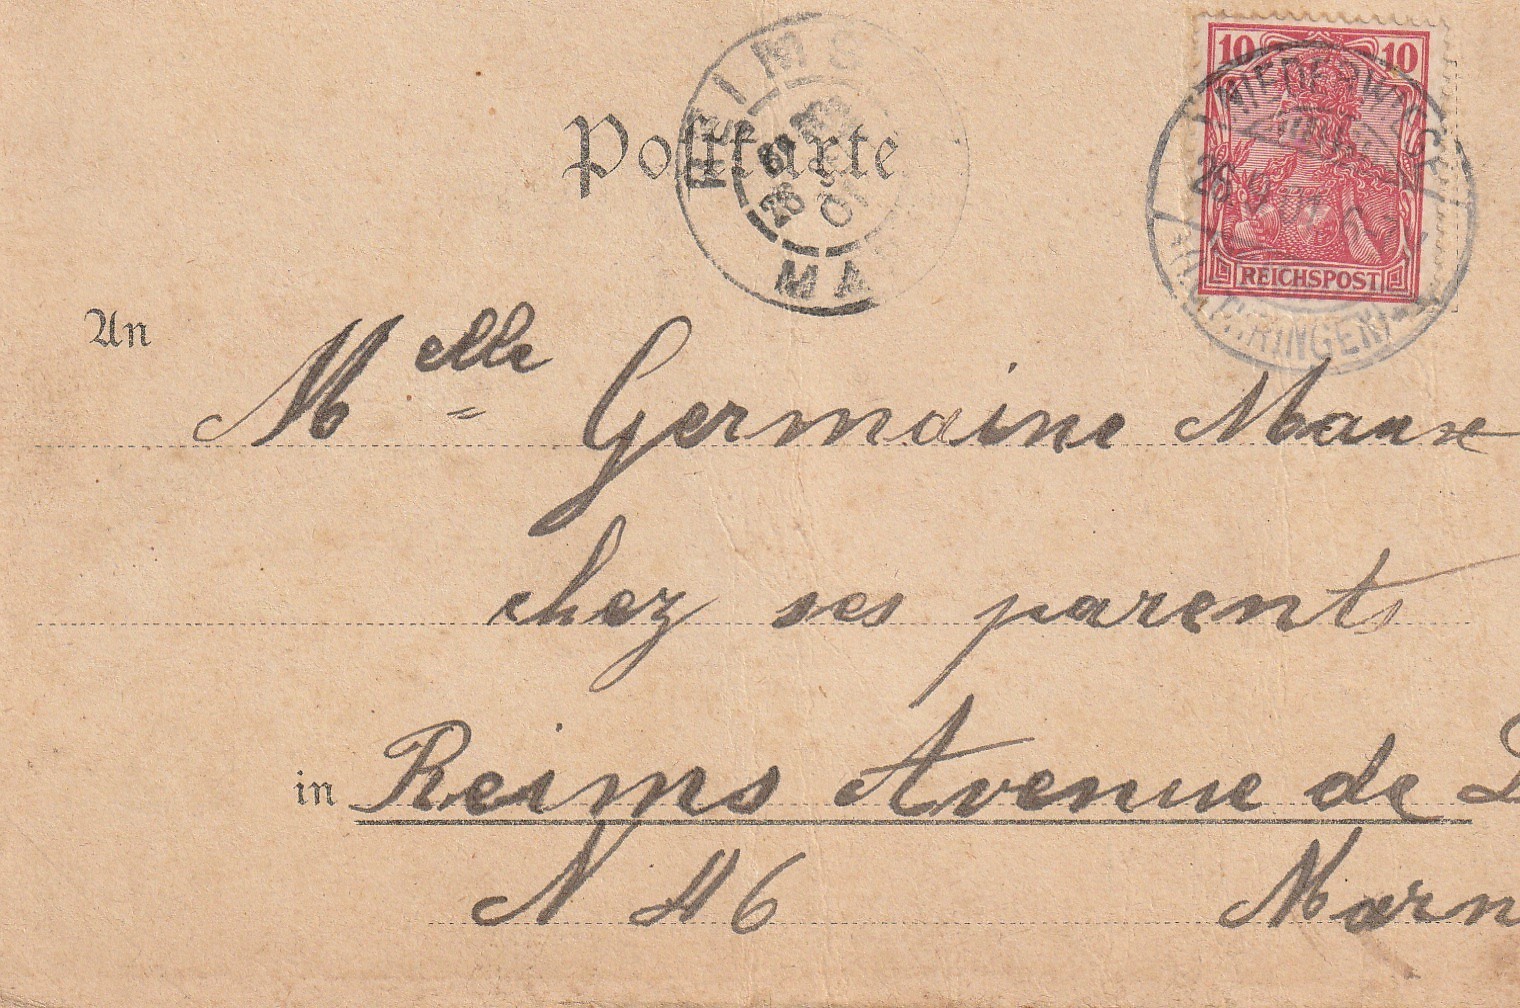 Postkarte
REIMS
28
01
10 10
REICHSPOST
26.9.01
An
Melle Germaine
chez ses parents
in Reims Avenue de
N 46 Marn